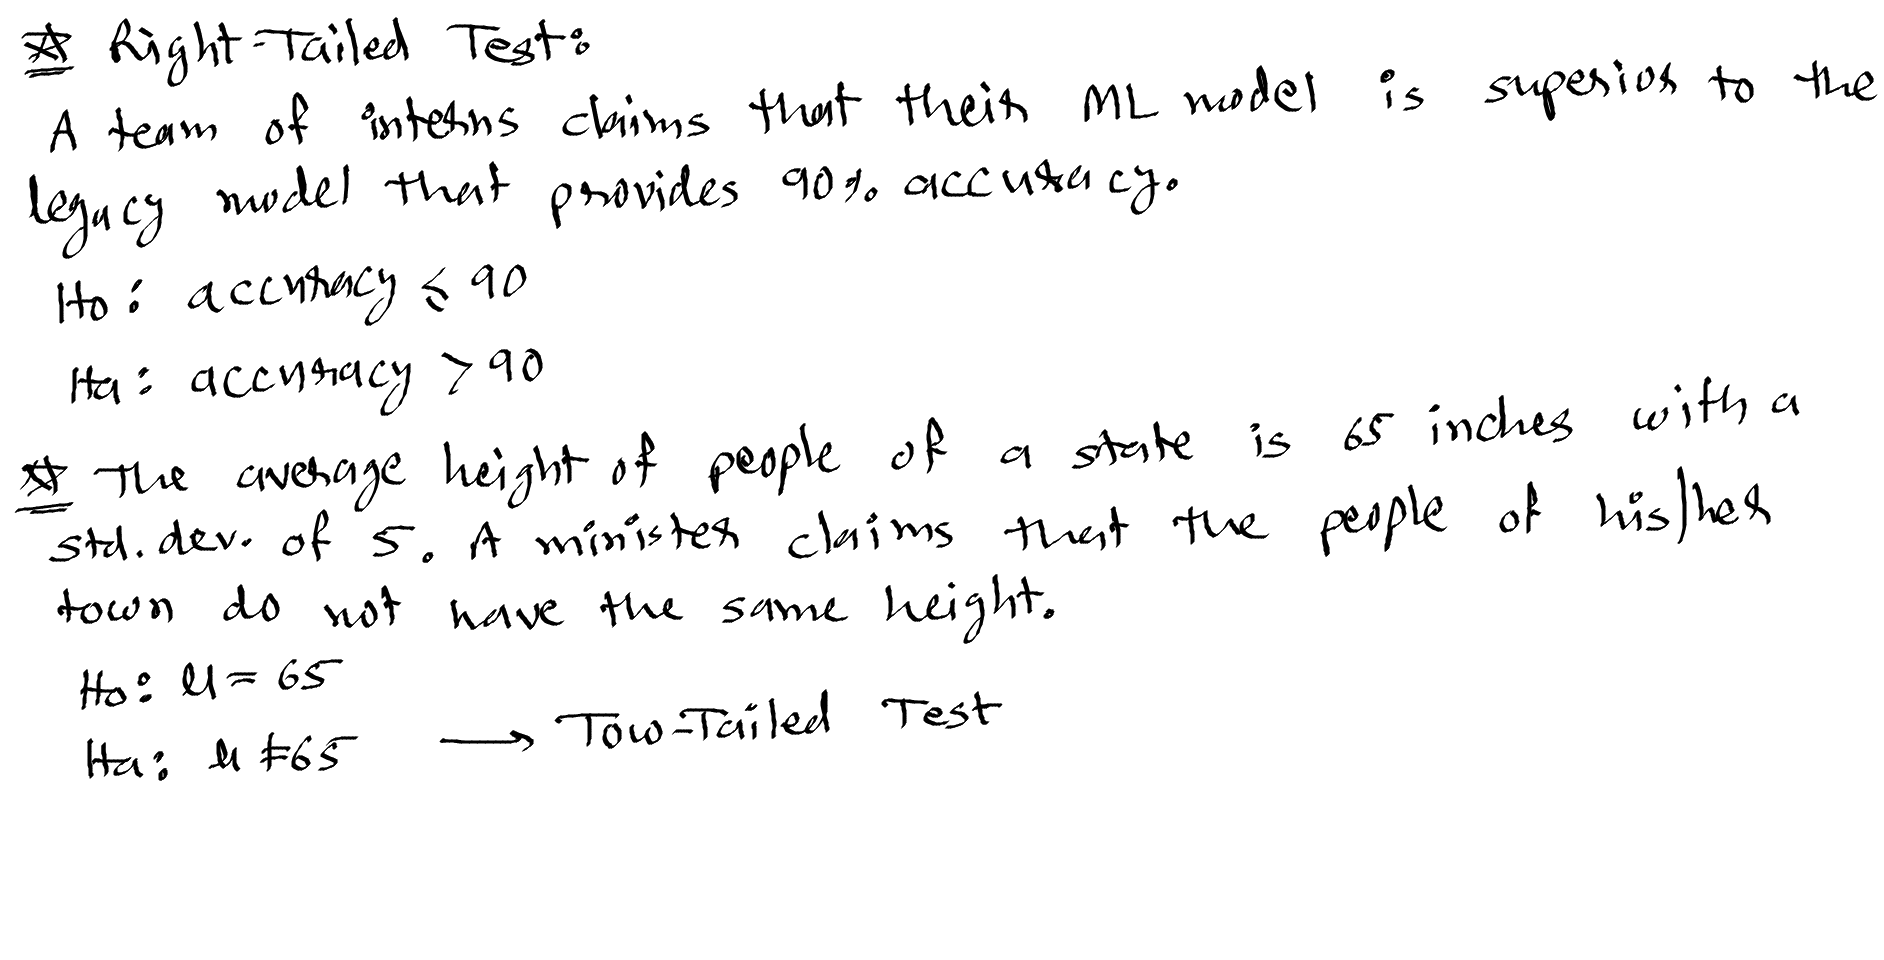 ☆ Right-Tailed Test:
A team of interns claims that their ML model is superior to the
legacy model that provides 90% accuracy.
Ho: accuracy ≤ 90
Ha: accuracy > 90
☆ The average height of people of a state is 65 inches with a
std. dev. of 5. A minister claims that the people of his/her
town do not have the same height.
Ho: μ = 65
Ha: μ ≠ 65 → Tow-Tailed Test